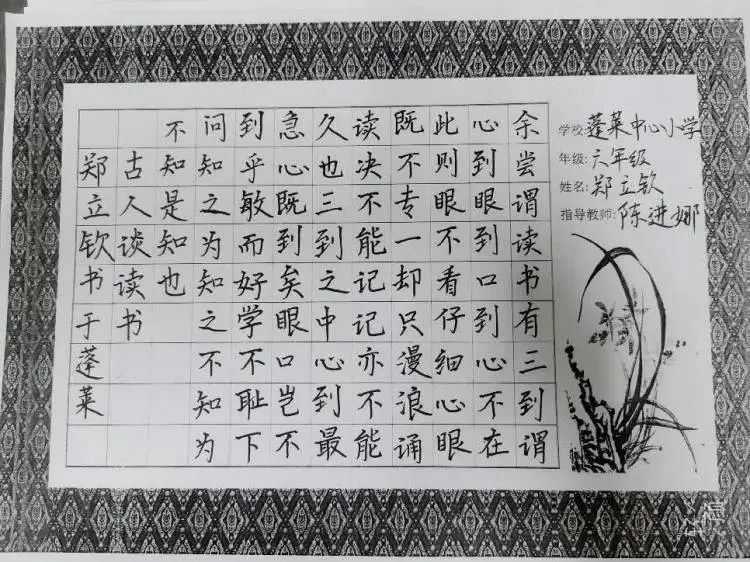 余尝谓读书有三到谓
心到眼到口到心不在
此则眼不看仔细心眼
既不专一却只漫浪诵
读决不能记记亦不能
久也三到之中心到最
急心既到矣眼口岂不
到乎敏而好学不耻下
问知之为知之不知为
不知是知也
古人谈读书
郑立钦书于蓬莱
学校:蓬莱中心小学
年级:六年级
姓名:郑立钦
指导教师:陈进娜